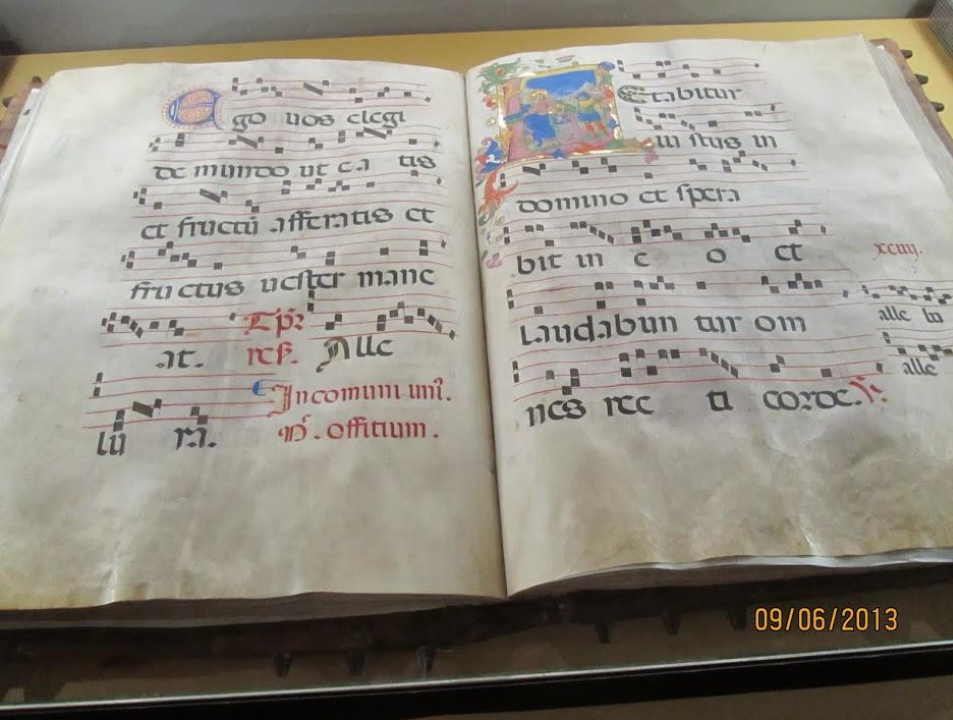 Ego uos elegi
de mundo ut ea tis
et fructū afferatis et
fructus uester mane
at. Tp̄r
res. Alle
lu ia. In comuni uniꝰ.
m̄. offitium.
Letabitur
iustus in
domino et spera
bit in e o et
xciiij.
laudabun tur om
alle lu
alle
nes rec ti corde. ℣.
09/06/2013